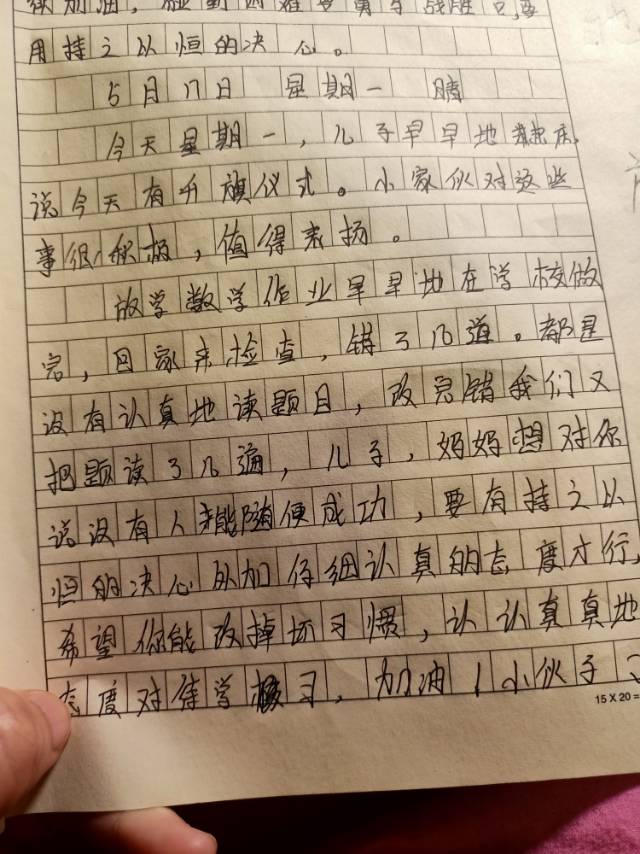 加油，碰到困难要勇于战胜它，要
用持之以恒的决心。
5月17日 星期一 晴
今天星期一，儿子早早地起床，
说今天有升旗仪式。小家伙对这些
事很积极，值得表扬。
放学数学作业早早地在学校做
完，回家来检查，错了几道。都是
没有认真地读题目，改完错我们又
把题读了几遍，儿子，妈妈想对你
说没有人能随便成功，要有持之以
恒的决心从加仔细认真的态度才行，
希望你能改掉坏习惯，认认真真地
态度对待学习，加油！小伙子
15 X 20 =